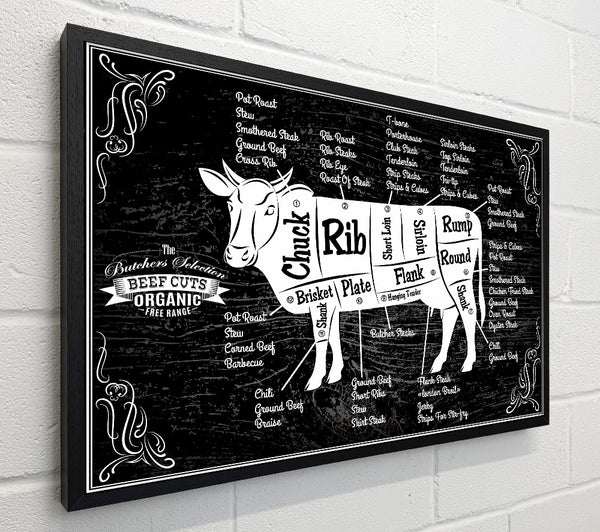 Pot Roast
Stew
Smothered Steak
Ground Beef
Cross Rib
Rib Roast
Rib Steaks
Rib Eye
Roast Of Steak
T-bone
Porterhouse
Club Steak
Tenderloin
Strip Steaks
Strips & Cubes
Sirloin Steaks
Top Sirloin
Tenderloin
Tri-tip
Strips & Cubes
Pot Roast
Stew
Smothered Steak
Ground Beef
Strips & Cubes
Pot Roast
Stew
Smothered Steak
Chicken Fried Steak
Ground Beef
Oven Roast
Oyster Steak
Chili
Ground Beef
Chuck
Rib
Short Loin
Sirloin
Rump
Round
Brisket
Plate
Flank
Hanging Tender
Shank
Shank
The
Butchers Selection
BEEF CUTS
ORGANIC
FREE RANGE
Pot Roast
Stew
Corned Beef
Barbecue
Butcher Steaks
Chili
Ground Beef
Braise
Ground Beef
Short Ribs
Stew
Skirt Steak
Flank Steak
«London Broil»
Jerky
Strips For Stir-fry